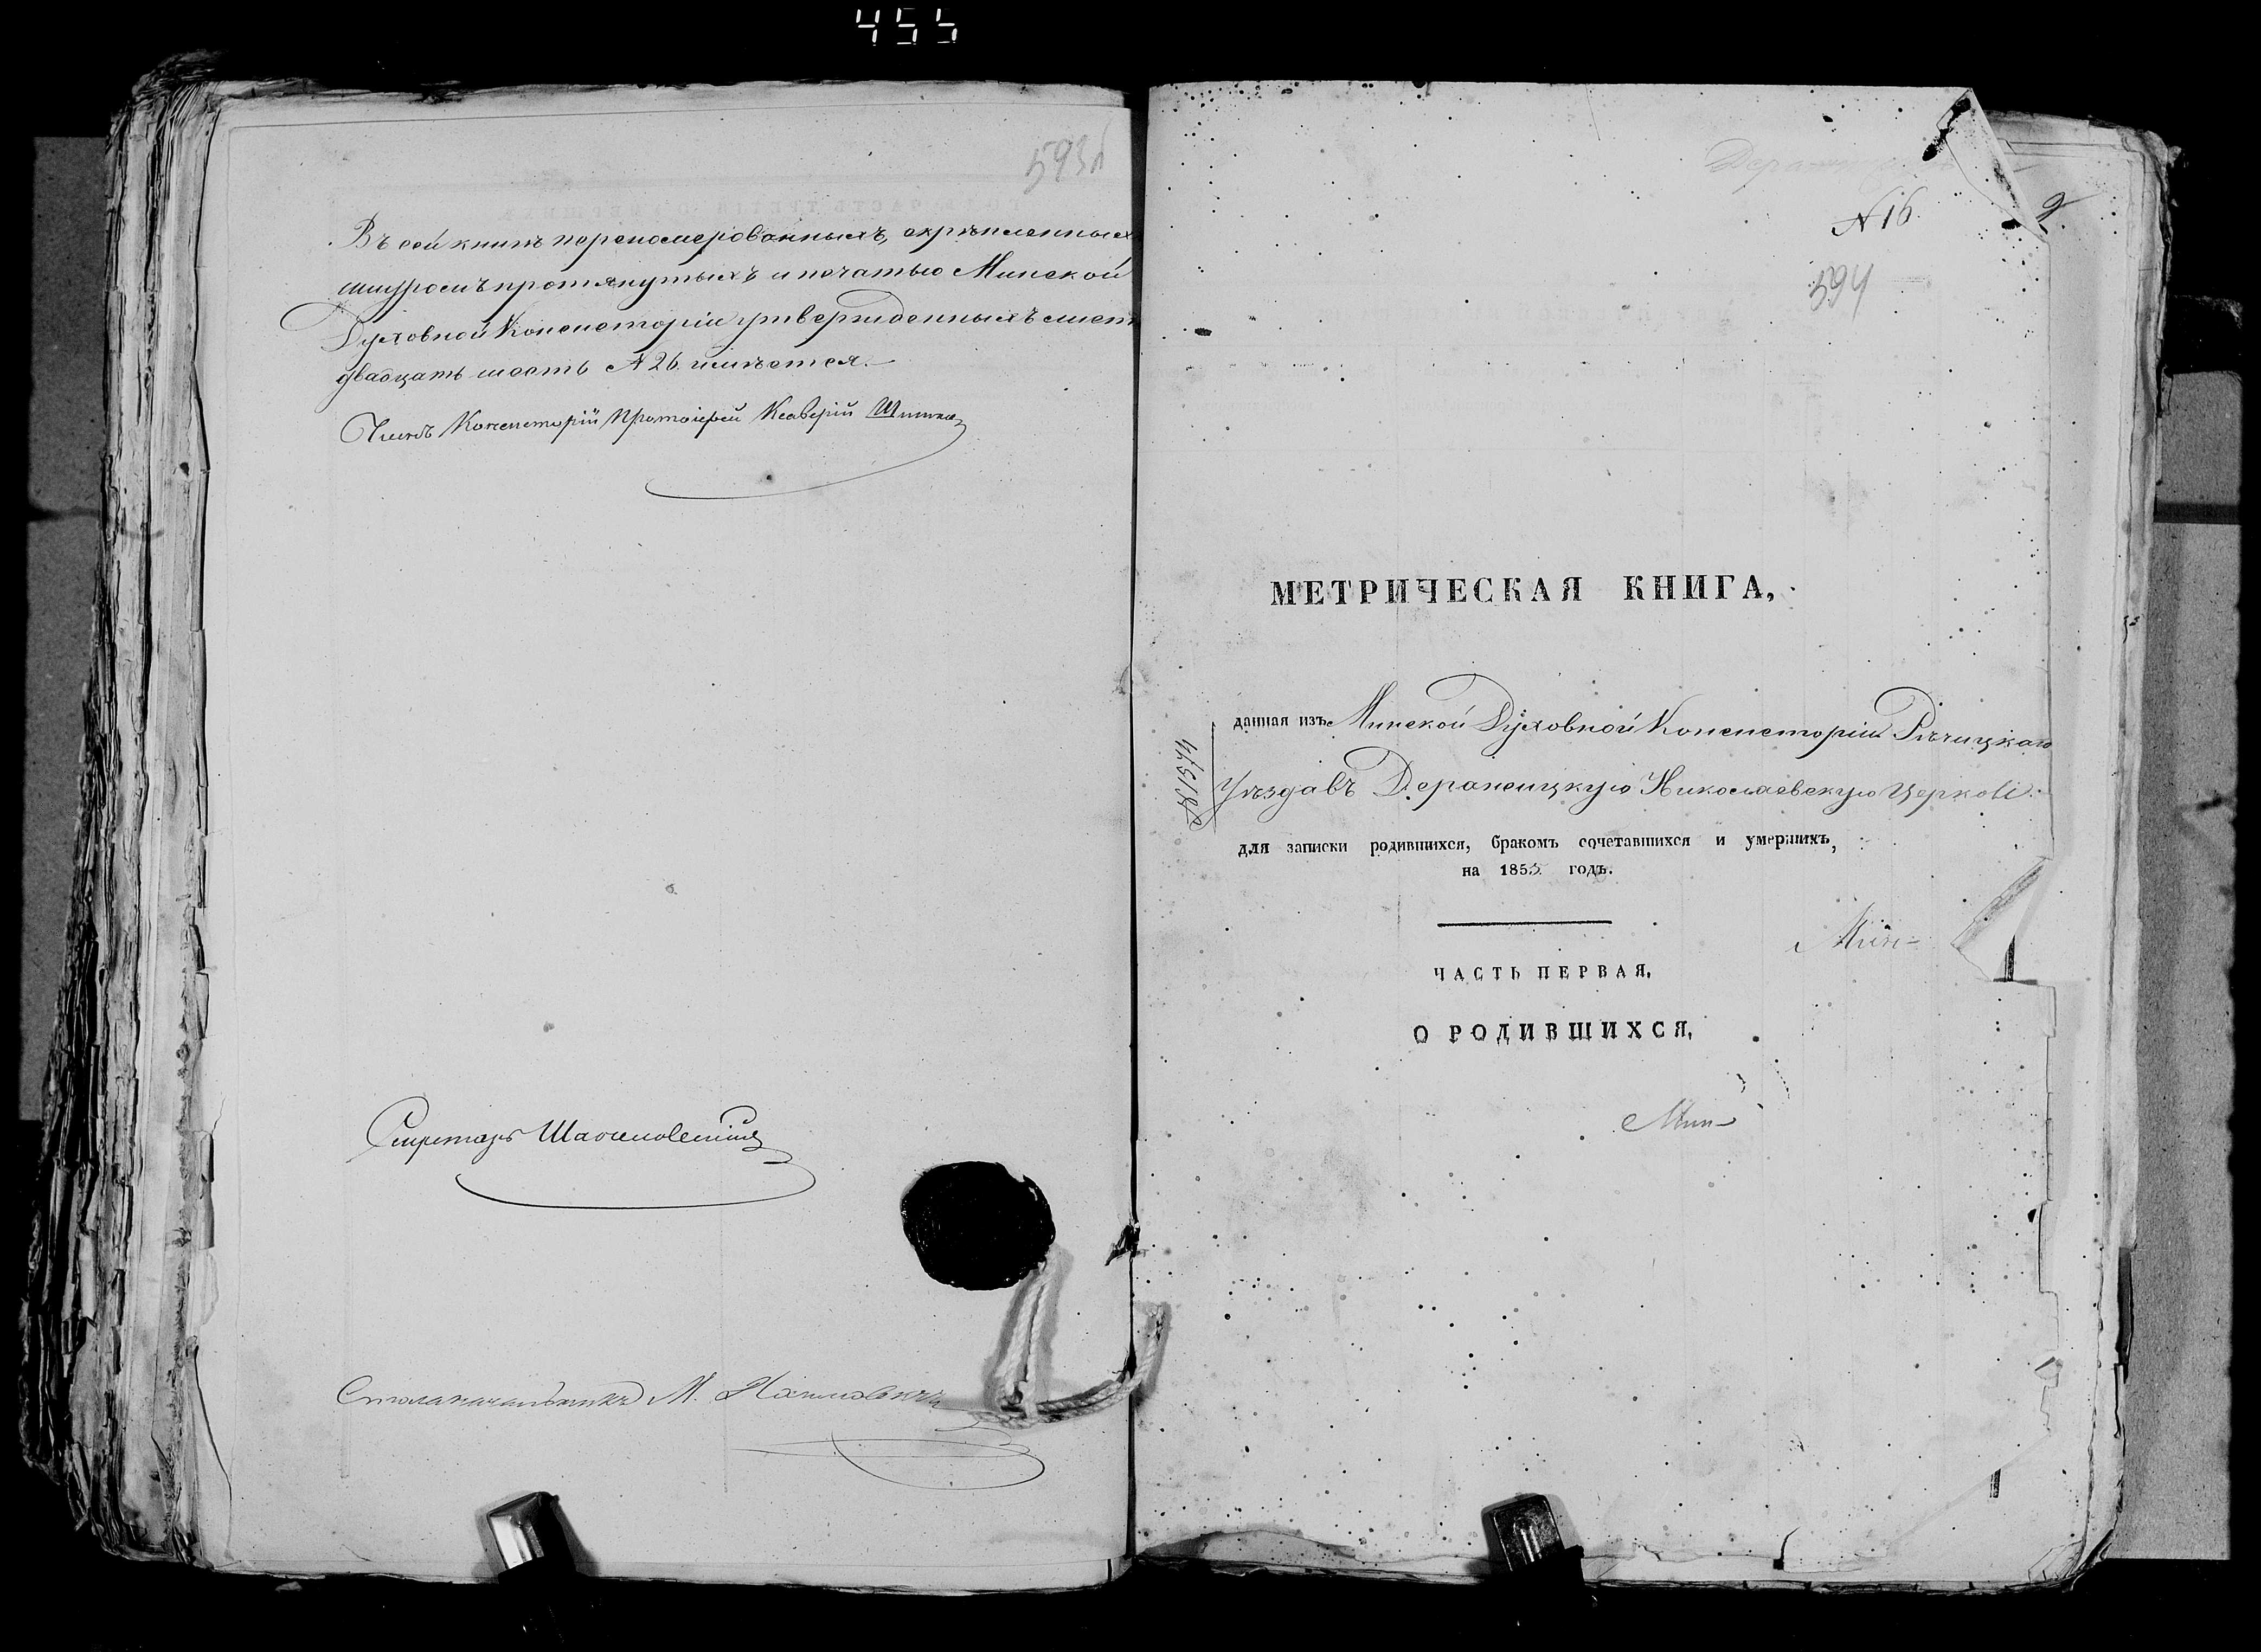 455
593б
Въ сей книгѣ перенумерованныхъ, скрѣпленныхъ
шнуромъ протянутыхъ и печатью Минской
Духовной Консисторіи утвержденныхъ лист
двадцать шесть № 26. имѣется.
Членъ Консисторіи Протоіерей Ксаверій
Секретарь
Столоначальникъ М.
№ 16.
2
594
МЕТРИЧЕСКАЯ КНИГА,
данная изъ Минской Духовной Консисторіи Рѣчицкаго
Уѣзда въ Деражицкую Николаевскую Церковь
для записки родившихся, бракомъ сочетавшихся и умершихъ,
на 1855 годъ.
Мин-
ЧАСТЬ ПЕРВАЯ,
О РОДИВШИХСЯ,
Мин-